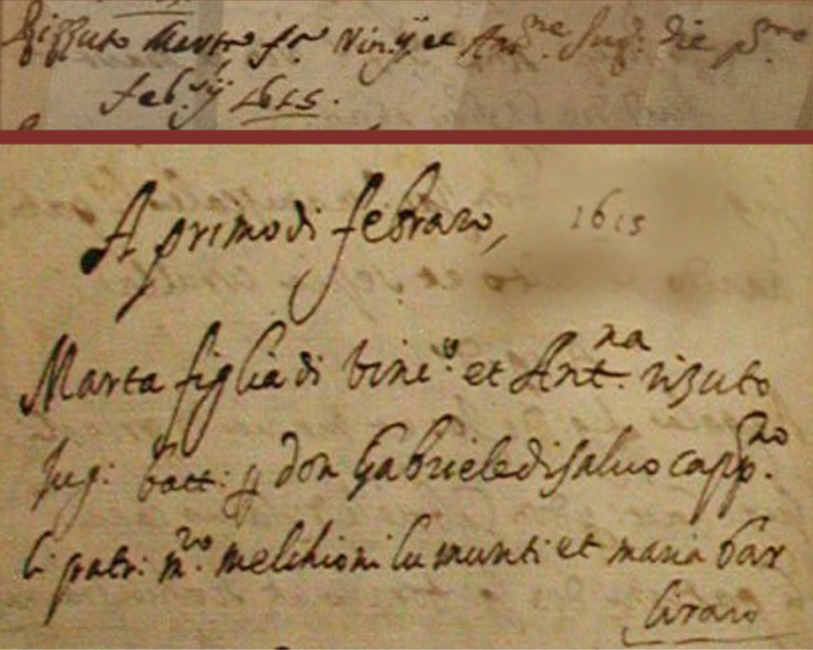 Rizzuto Marta fa Vin.ij et Ant.ne Jug: die p.mo
feb.ij 1615.
A primo di febraro, 1615
Marta figlia di vinc.o et Ant.na rizuto
Jug: batt: p don Gabriele di salvo capp.no
li patri: m.ro melchioni lu munti et maria bar
liraro